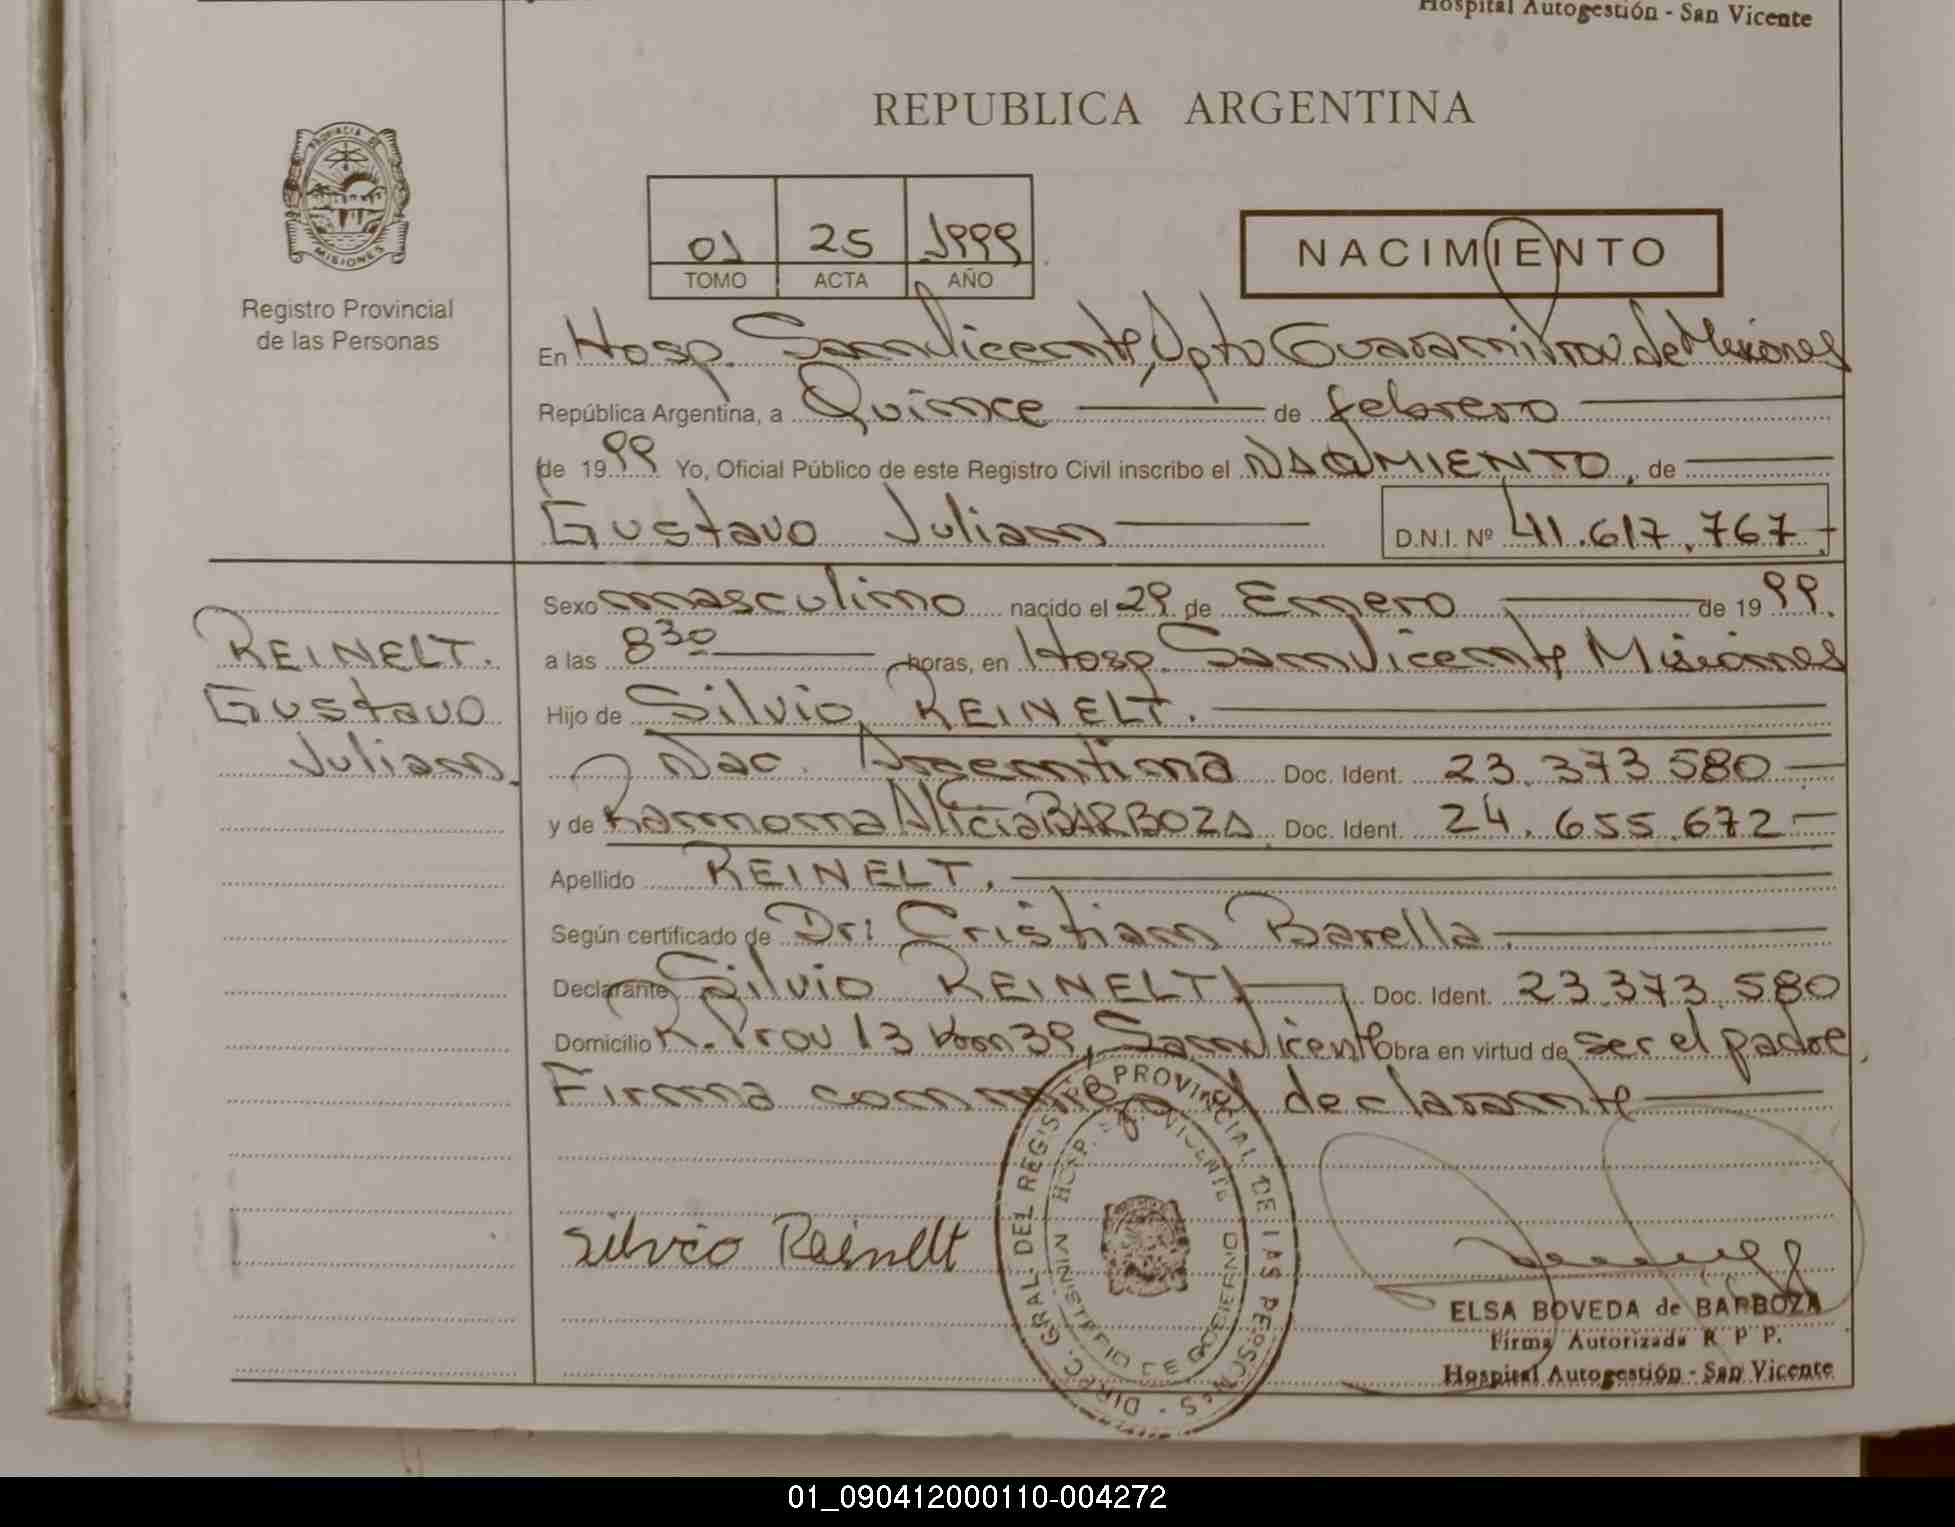 Hospital Autogestión - San Vicente
REPUBLICA ARGENTINA
PROVINCIA DE
MISIONES
Registro Provincial
de las Personas
01 25 1999
TOMO ACTA AÑO
NACIMIENTO
En Hosp. San Vicente, Dpto Guaraní Prov de Misiones
República Argentina, a Quince de febrero
de 1999 Yo, Oficial Público de este Registro Civil inscribo el NACIMIENTO, de
Gustavo Julian D.N.I. Nº 41.617.767
REINELT.
Gustavo
Julian
Sexo masculino nacido el 29 de Enero de 1999.
a las 8 30 horas, en Hosp. San Vicente Misiones
Hijo de Silvio REINELT.
Nac. Argentina Doc. Ident. 23.373.580
y de Ramona Alicia BARBOZA Doc. Ident. 24.655.672
Apellido REINELT.
Según certificado de Dr: Cristian Barella
Declarante Silvio REINELT Doc. Ident. 23.373.580
Domicilio R. Prov 13 km 39, San Vicente Obra en virtud de ser el padre,
Firma conmigo el declarante
Silvio Reinelt
DIREC. GRAL. DEL REGISTRO PROVINCIAL DE LAS PERSONAS
MINISTERIO DE GOBIERNO
ELSA BOVEDA de BARBOZA
Firma Autorizada R P P.
Hospital Autogestión - San Vicente
01_090412000110-004272